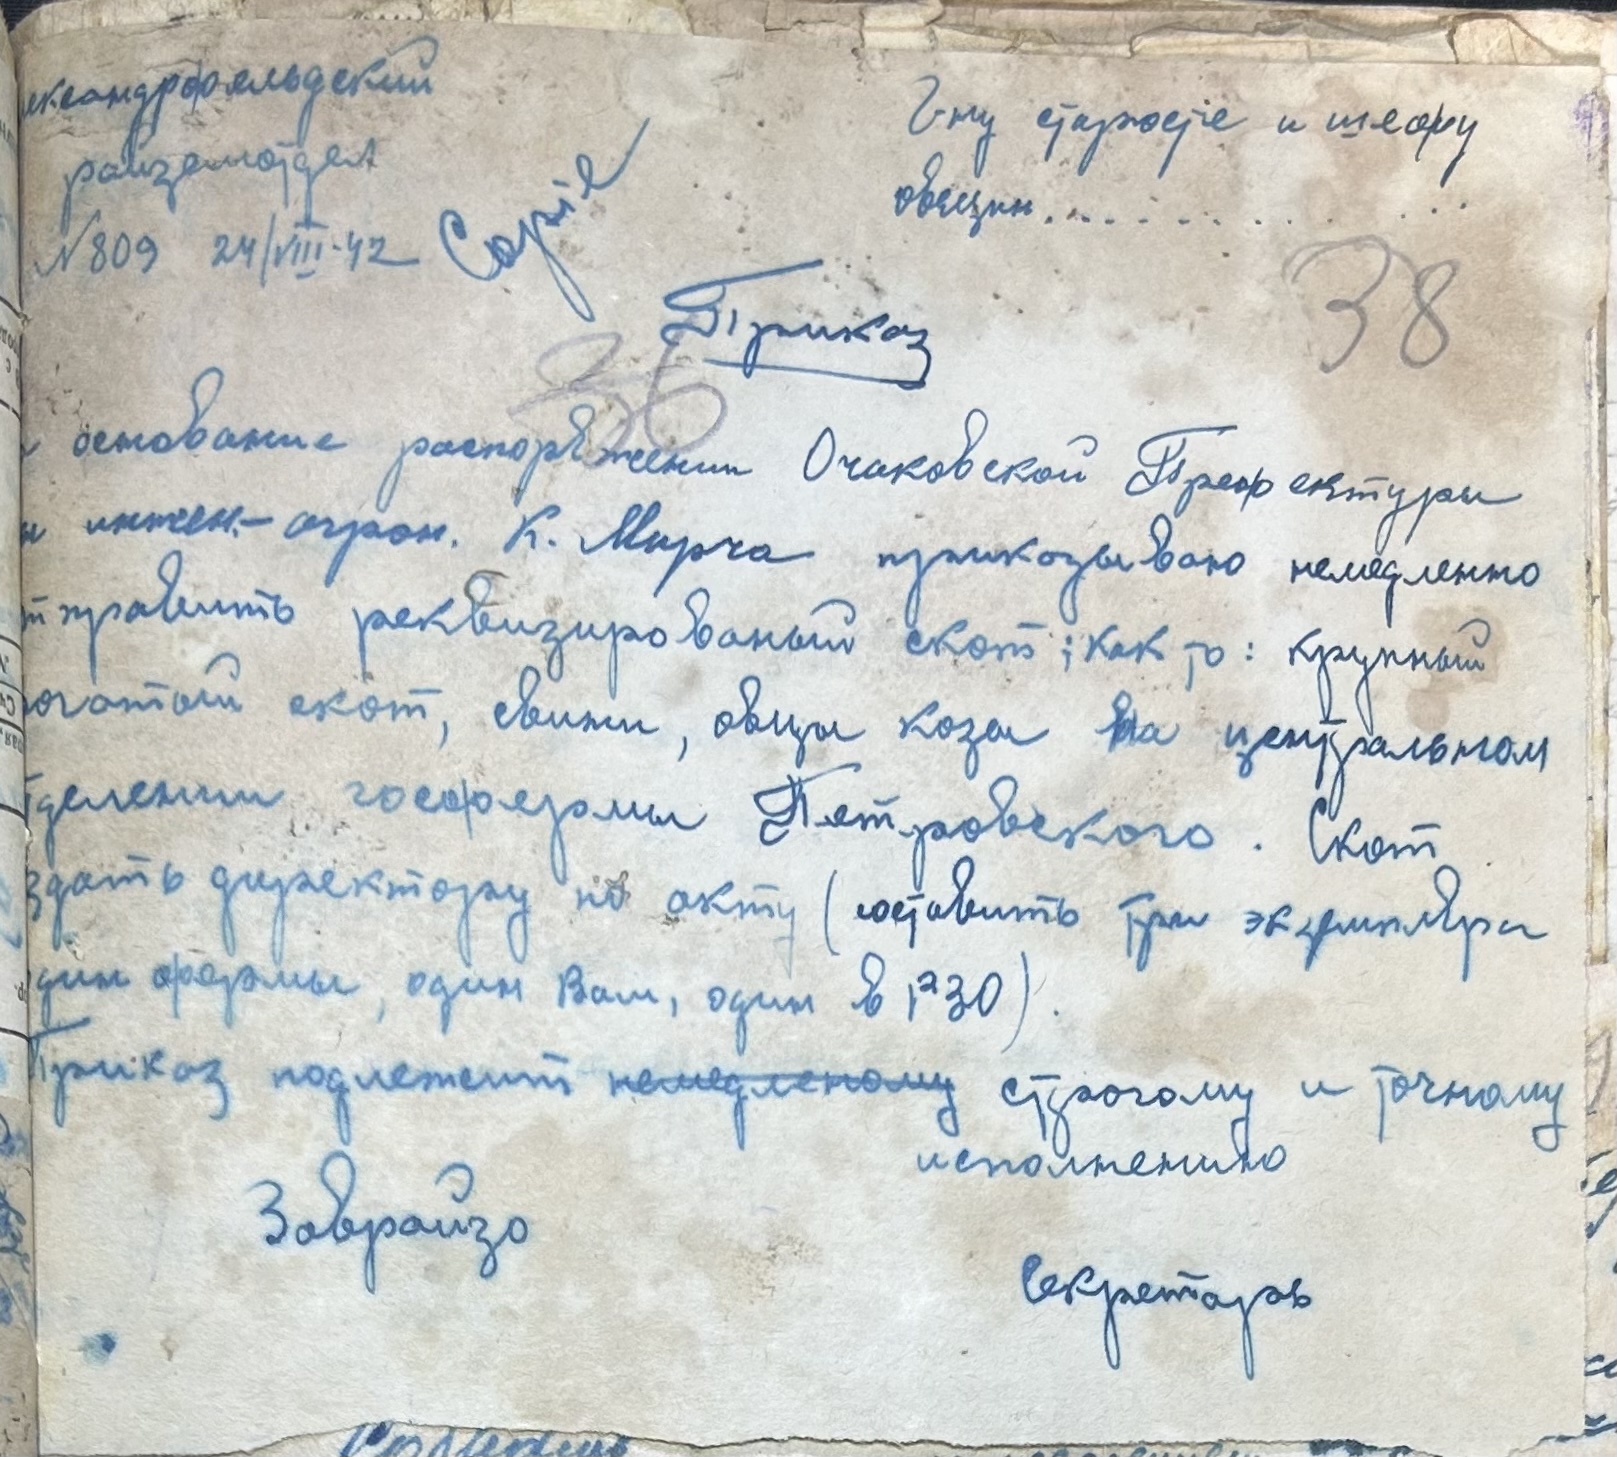 ександрфельдский
райземотдел
№ 809 24/VIII-42
Copie
Г-ну старосте и шефу
общин..............
38
Приказ
36
основание распоряжении Очаковской Префектуры
и инжен.- агрон. К. Мирча приказываю немедленно
тправить реквизированый скот; как то: крупный
огатый скот, свини, овцы козы на центральном
тделении госфермы Петровского. Скот
здать директору по акту (составить три экземпляра
дин фермы, один Вам, один в РЗО).
Приказ подлежит немедленому строгому и точному
исполнению
Заврайзо
Секретарь